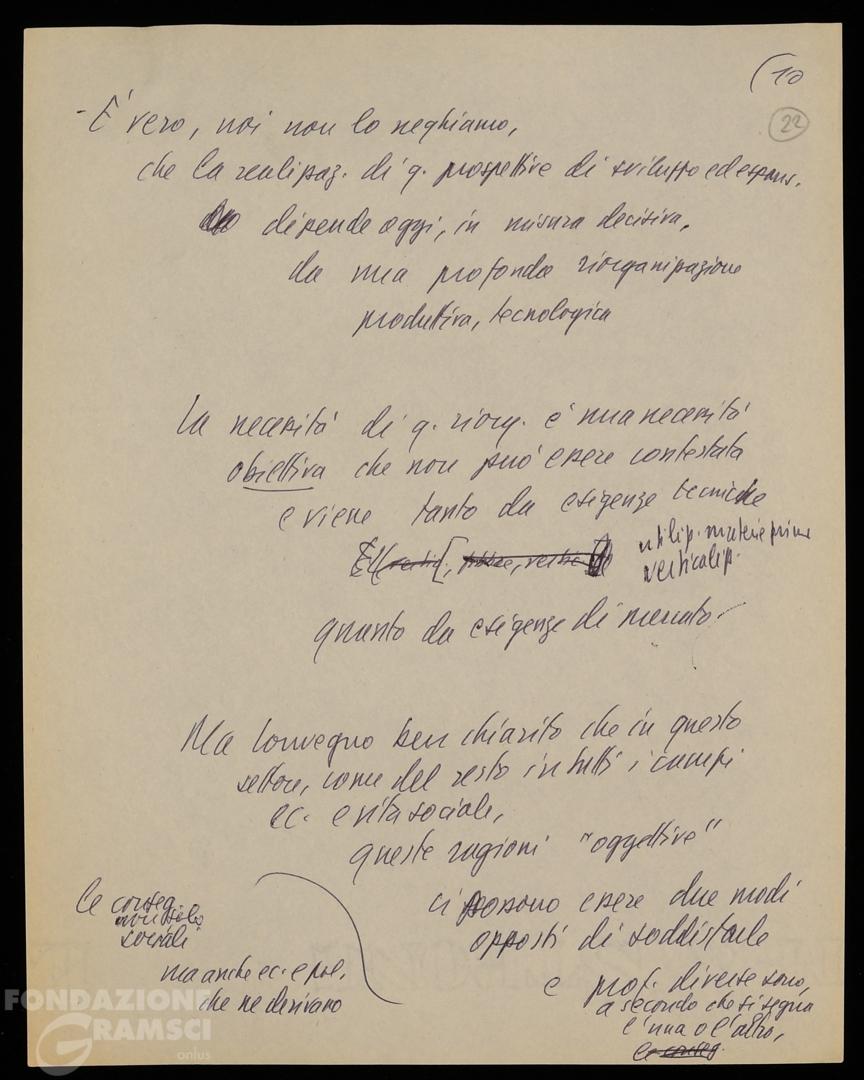 (10
22
- E' vero, noi non lo neghiamo,
che la realizzaz. di q. prospettive di sviluppo ed espans.
dipende oggi, in misura decisiva,
da una profonda riorganizzazione
produttiva, tecnologica
La necessità di q. riorg. è una necessità
obiettiva che non può essere contestata
e viene tanto da esigenze tecniche
utilizz. materie prime
verticalizz.
quanto da esigenze di mercato.
Ma Convegno ben chiarito che in questo
settore, come del resto in tutti i campi
ec. e vita sociale,
queste ragioni "oggettive"
ci possono essere due modi
opposti di soddisfarle
e prof. diverse sono,
a secondo che si segua
l'una o l'altro,
le conseg.
le conseg.
non solo
sociali
ma anche ec. e pol.
che ne derivano
FONDAZIONE
GRAMSCI
onlus